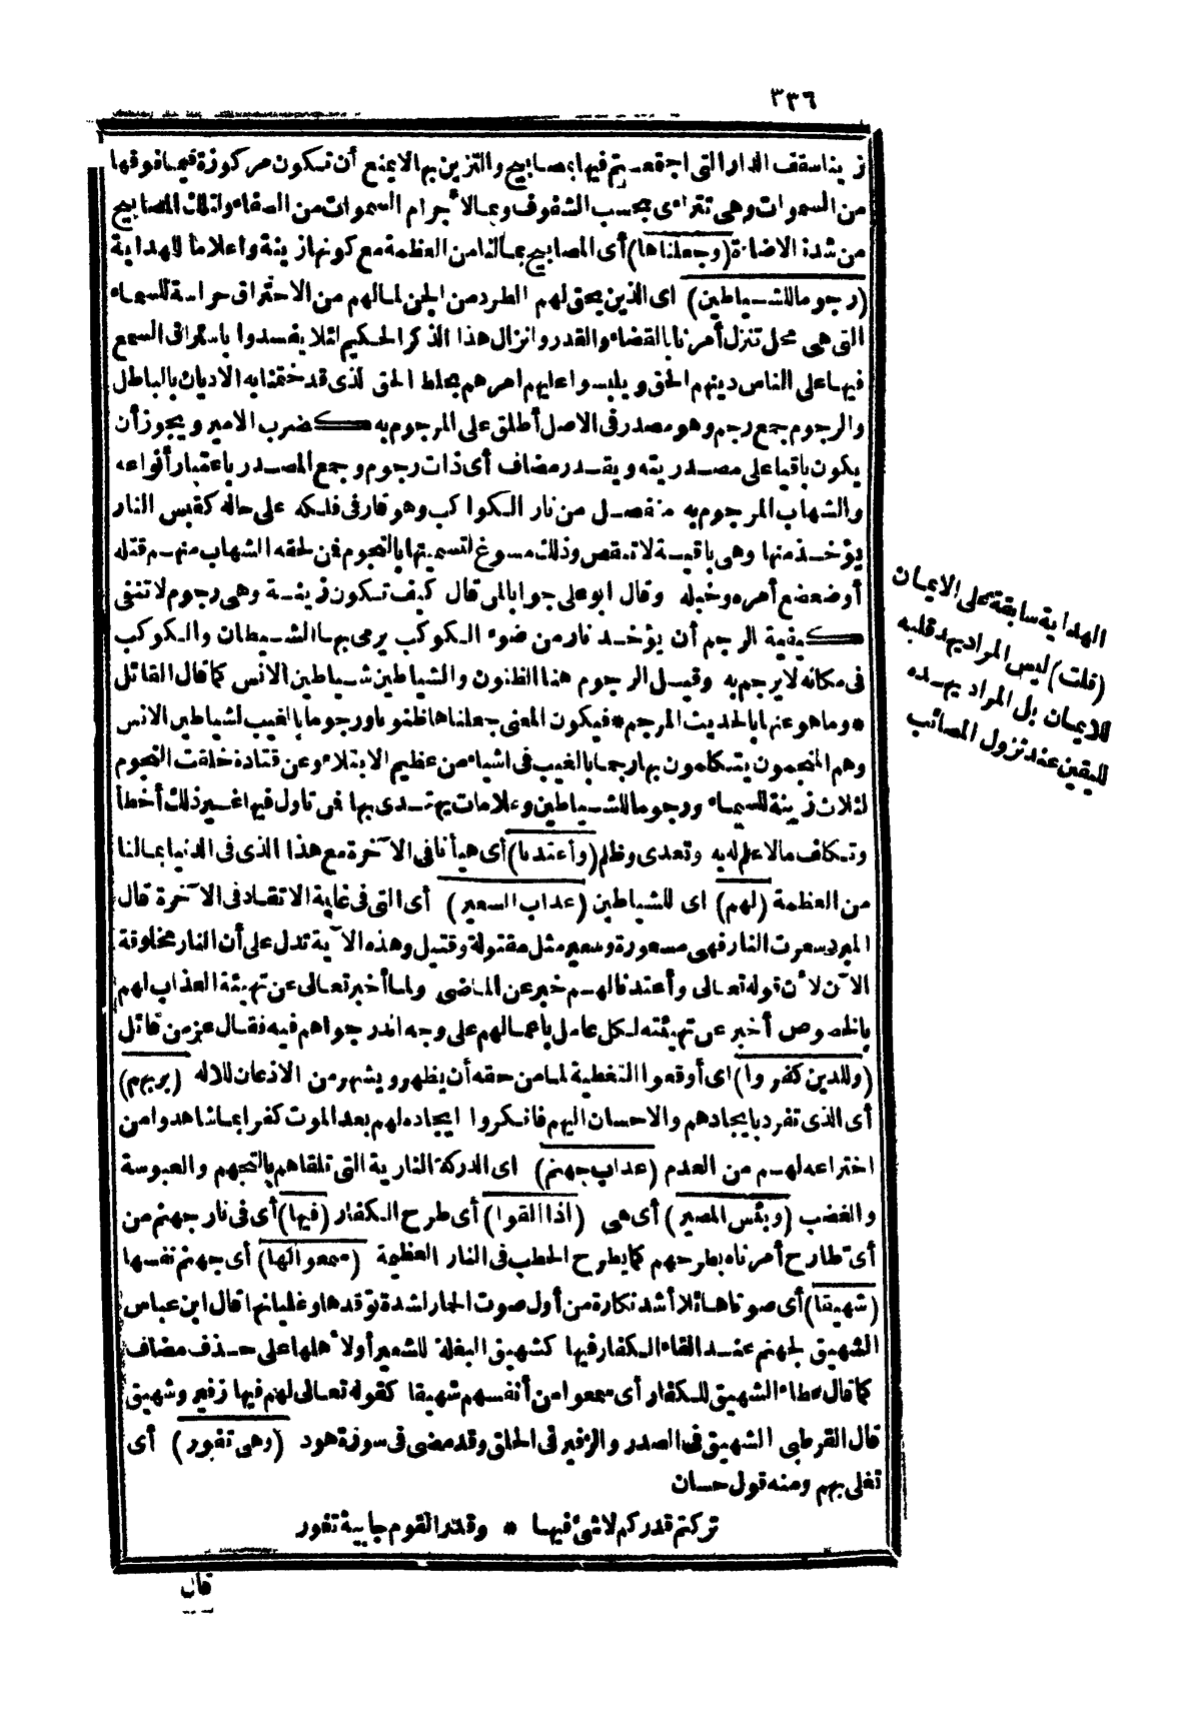 ٣٣٦
زينا سقف الدار التى اجتمعتم فيها بمصابيح والتزين بها لا يمنع أن تكون مركوزة فيما فوقها
من السموات وهى تتراءى بحسب الشفوف وبما لأجرام السموات من الصفاء ولتلك المصابيح
من شدة الاضاءة (وجعلناها) أى المصابيح بما لنا من العظمة مع كونها زينة واعلاما للهداية
(رجوما للشياطين) اى الذين يحق لهم الطرد من الجن لما لهم من الاحتراق حراسة للسماء
التى هى محل تنزل أمرنا بالقضاء والقدر وانزال هذا الذكر الحكيم لئلا يفسدوا باستراق السمع
فيها على الناس دينهم الحق ويلبسوا عليهم امرهم بخلط الحق لذى قد ختمنا به الاديان بالباطل
والرجوم جمع رجم وهو مصدر فى الاصل أطلق على المرجوم به كضرب الامير ويجوز أن
يكون باقيا على مصدريته ويقدر مضاف أى ذات رجوم وجمع المصدر باعتبار أنواعه
والشهاب المرجوم به منفصل من نار الكواكب وهو قار فى فلكه على حاله كقبس النار
يؤخذ منها وهى باقية لا تنقص وذلك مسوغ لتسميتها بالنجوم فمن لحقه الشهاب منهم قتله
أو ضعضع أمره وخبله وقال ابو على جوابا لمن قال كيف تكون زينة وهى رجوم لا تبقى
كيفية الرجم أن يؤخذ نار من ضوء الكوكب يرمى بها الشيطان والكوكب
فى مكانه لا يرجم به وقيل الرجوم هنا الظنون والشياطين شياطين الانس كما قال القائل
* وما هو عنها بالحديث المرجم * فيكون المعنى جعلناها ظنونا ورجوما بالغيب لشياطين الانس
وهم المنجمون يتكلمون بها رجما بالغيب فى اشياء من عظيم الابتلاء وعن قتادة خلقت النجوم
لثلاث زينة للسماء ورجوما للشياطين وعلامات يهتدى بها فمن تاول فيها غير ذلك أخطأ
وتكلف مالا علم له به وتعدى وظلم (وأعتدنا) أى هيأنا فى الآخرة مع هذا الذى فى الدنيا بما لنا
من العظمة (لهم) اى للشياطين (عذاب السعير) أى التى فى غاية الاتقاد فى الآخرة قال
المبرد سعرت النار فهى مسعورة وسعير مثل مقتولة وقتيل وهذه الآية تدل على أن النار مخلوقة
الآن لأن قوله تعالى وأعتدنا لهم خبر عن الماضى ولما أخبر تعالى عن تهيئة العذاب لهم
بالخصوص أخبر عن تهيئته لكل عامل بأعمالهم على وجه اندرجوا هم فيه فقال عز من قائل
(وللذين كفروا) اى أوقعوا التغطية لما من حقه أن يظهر ويشهر من الاذعان للاله (بربهم)
أى الذى تفرد بايجادهم والاحسان اليهم فانكروا ايجاده لهم بعد الموت كفرا بما شاهدوا من
اختراعه لهم من العدم (عذاب جهنم) اى الدركة النارية التى تلقاهم بالتجهم والعبوسة
والغضب (وبئس المصير) أى هى (اذا ألقوا) أى طرح الكفار (فيها) أى فى نار جهنم من
أى طارح أمرناه بطرحهم كما يطرح الحطب فى النار العظيمة (سمعوا لها) أى جهنم نفسها
(شهيقا) أى صوتا هائلا أشد نكارة من أول صوت الحمار لشدة توقدها وغليانها قال ابن عباس
الشهيق لجهنم عند القاء الكفار فيها كشهيق البغلة للشعير أو لأهلها على حذف مضاف
كما قال عطاء الشهيق للكفار أى سمعوا من أنفسهم شهيقا كقوله تعالى لهم فيها زفير وشهيق
قال القرطبى الشهيق فى الصدر والزفير فى الحلق وقد مضى فى سورة هود (وهى تفور) أى
تغلى بهم ومنه قول حسان
تركتم قدركم لا شئ فيها * وقدر القوم حامية تفور
قال
الهداية سابقة على الايمان
(قلت) ليس المراد يهد قلبه
للايمان بل المراد يهده
لليقين عند نزول المصائب